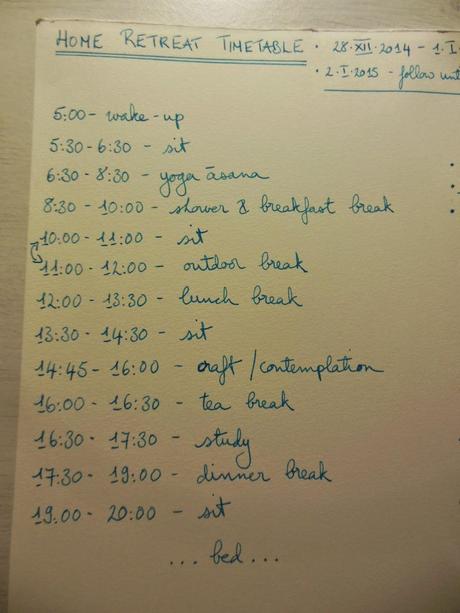 HOME RETREAT TIMETABLE • 28.XII.2014 - 1.I.
• 2.I.2015 - follow
5:00 - wake-up
5:30-6:30 - sit
6:30 - 8:30 - yoga āsana
8:30 - 10:00 - shower & breakfast break
10:00 - 11:00 - sit
11:00 - 12:00 - outdoor break
12:00 - 13:30 - lunch break
13:30 - 14:30 - sit
14:45 - 16:00 - craft/contemplation
16:00 - 16:30 - tea break
16:30 - 17:30 - study
17:30 - 19:00 - dinner break
19.00 - 20:00 - sit
... bed...